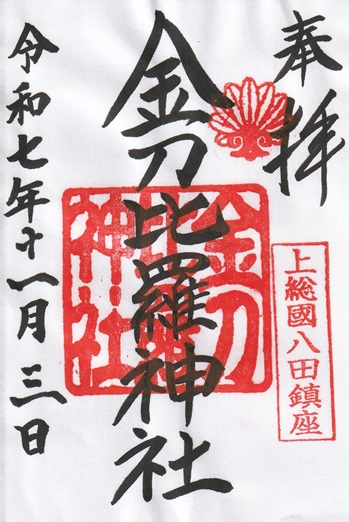 奉拝
上総國八田鎮座
金刀比羅神社
金刀比羅神社
令和七年十一月三日